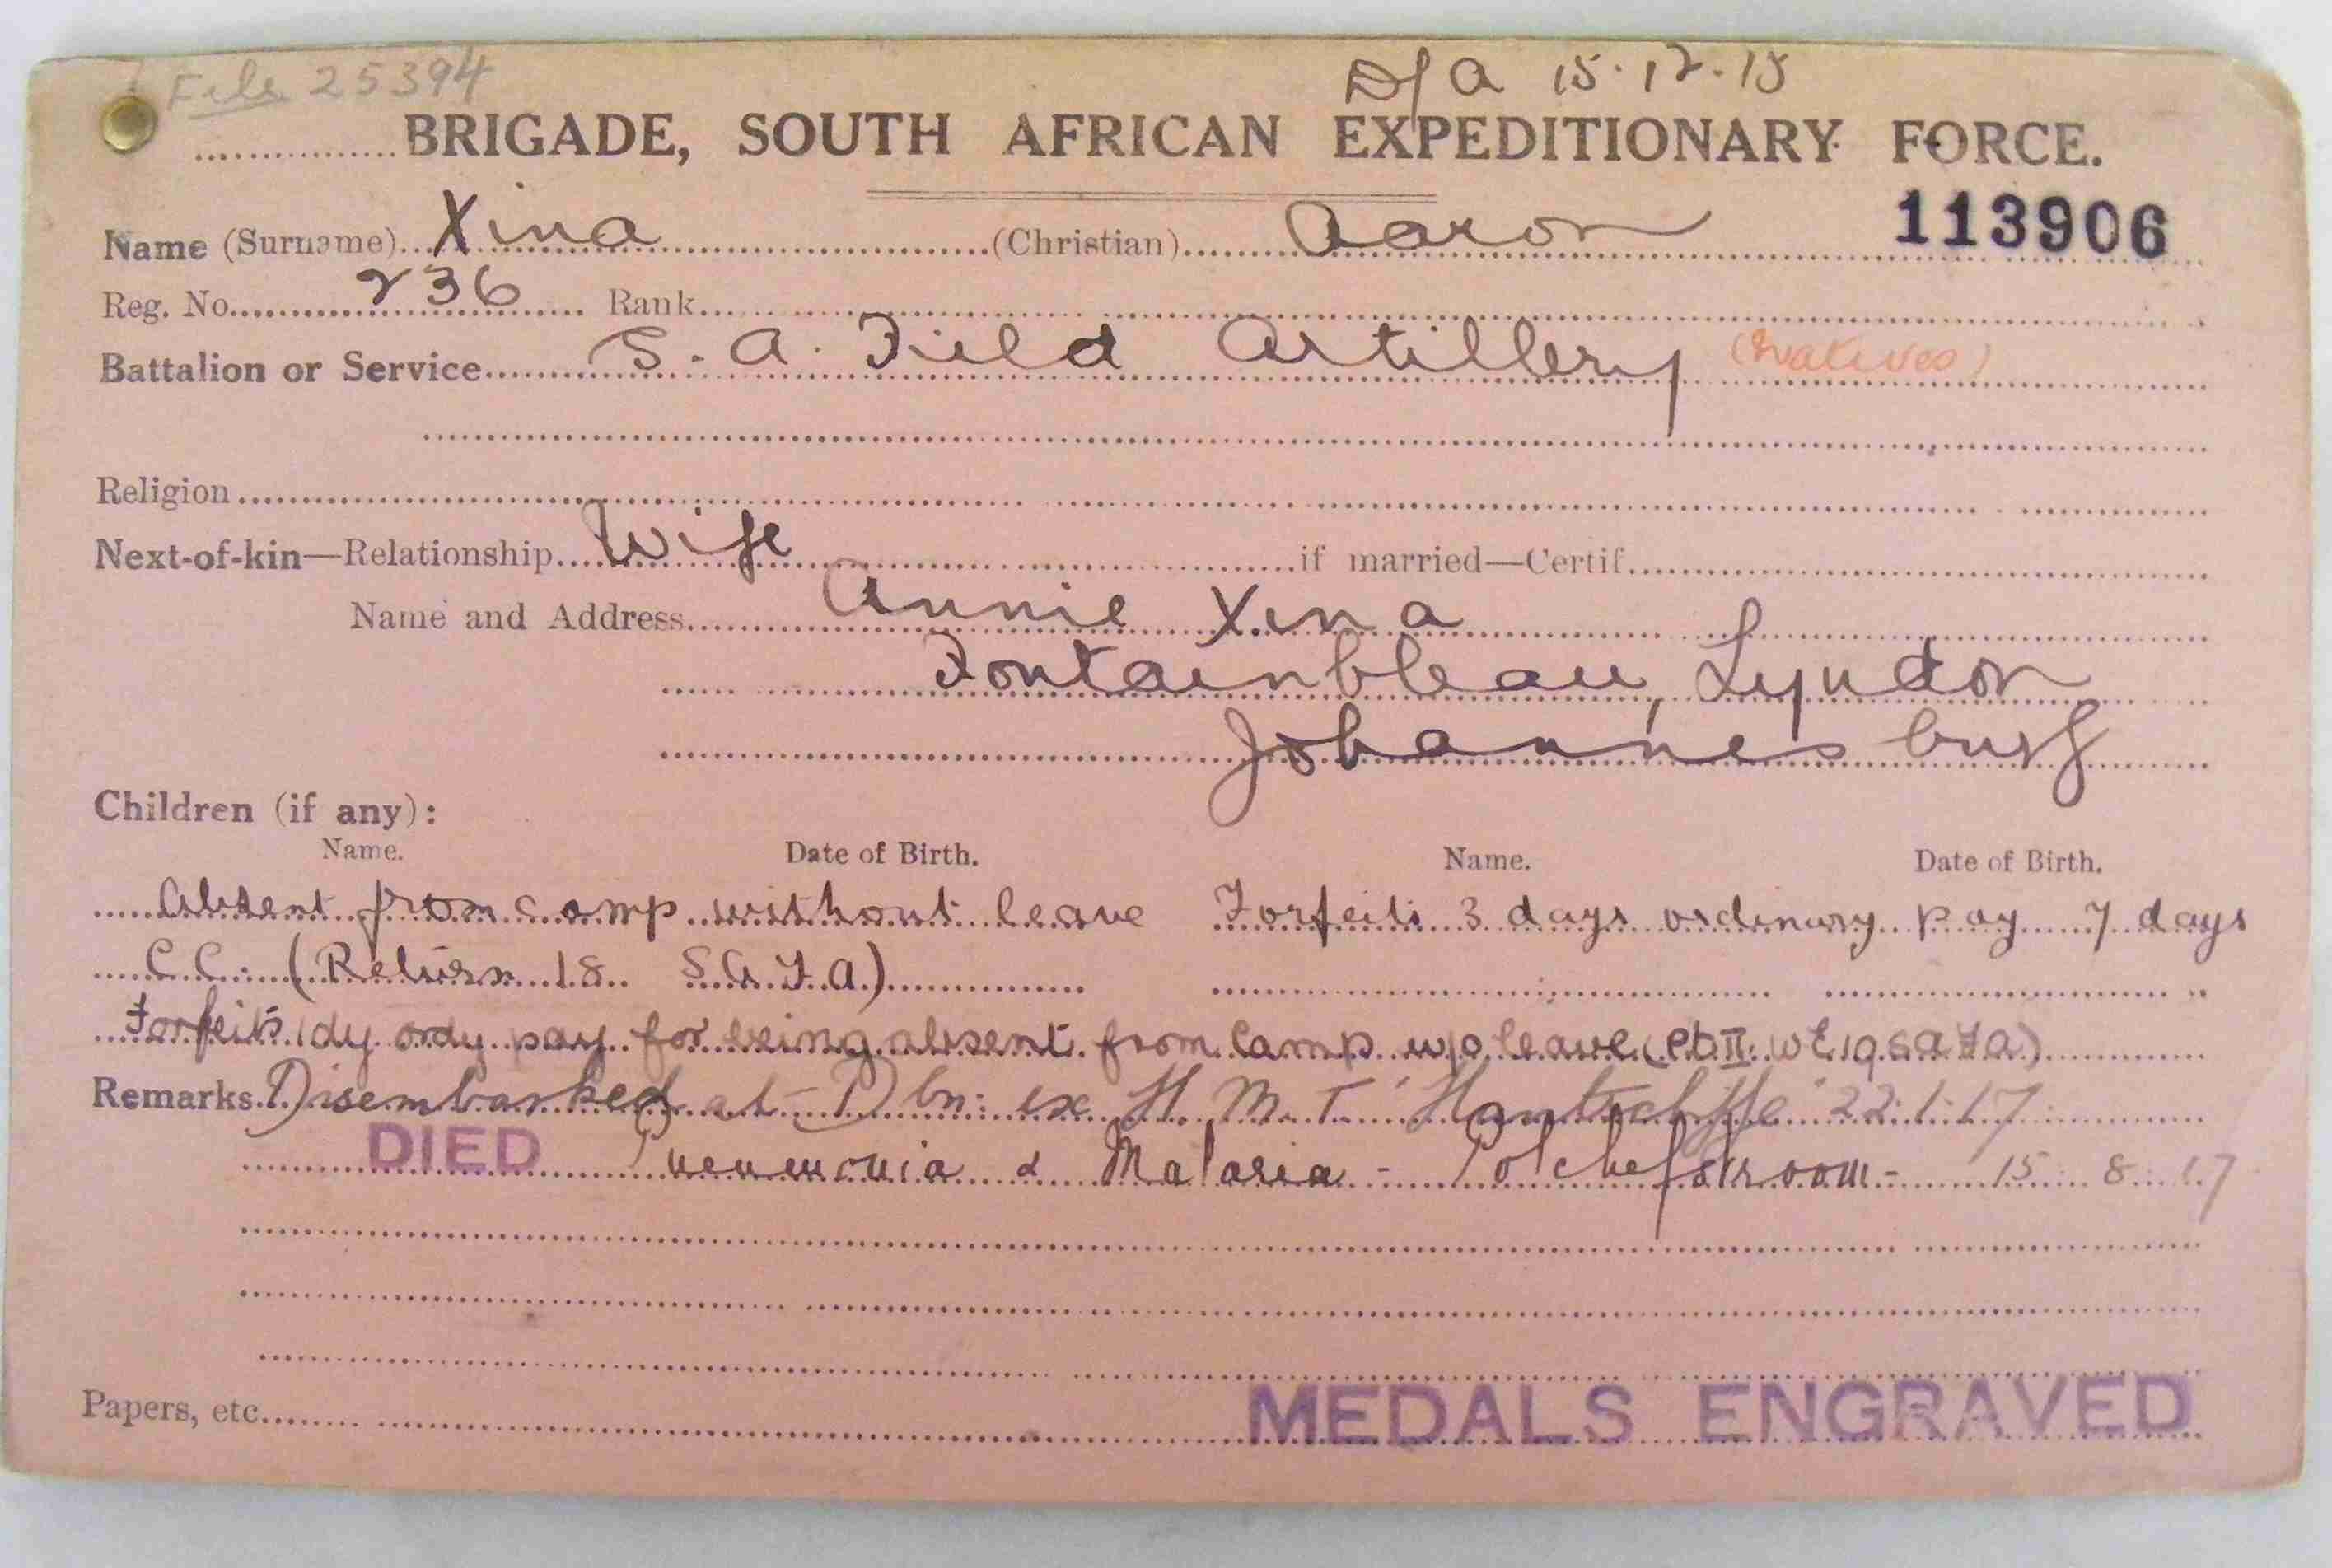 File 25394
D/A 15.12.15
BRIGADE, SOUTH AFRICAN EXPEDITIONARY FORCE.
113906
Name (Surname) Xina (Christian) Aaron
Reg. No. 236 Rank
Battalion or Service S. A. Field Artillery (Natives)
Religion
Next-of-kin—Relationship Wife if married—Certif.
Name and Address Annie Xina
Fontainbleau, Lyndon
Johannesburg
Children (if any):
Name. Date of Birth. Name. Date of Birth.
Absent from camp without leave Forfeits 3 days ordinary pay 7 days
C.C. (Return 18 S.A.F.A.)
Forfeits 1dy ordy pay for being absent from Camp w/o leave (Pt II WE 19 SAFA)
Remarks. Disembarked at Dbn: ex H. M. T. 22.1.17
DIED Pneumonia & Malaria - Potchefstroom - 15 8 17
Papers, etc.
MEDALS ENGRAVED